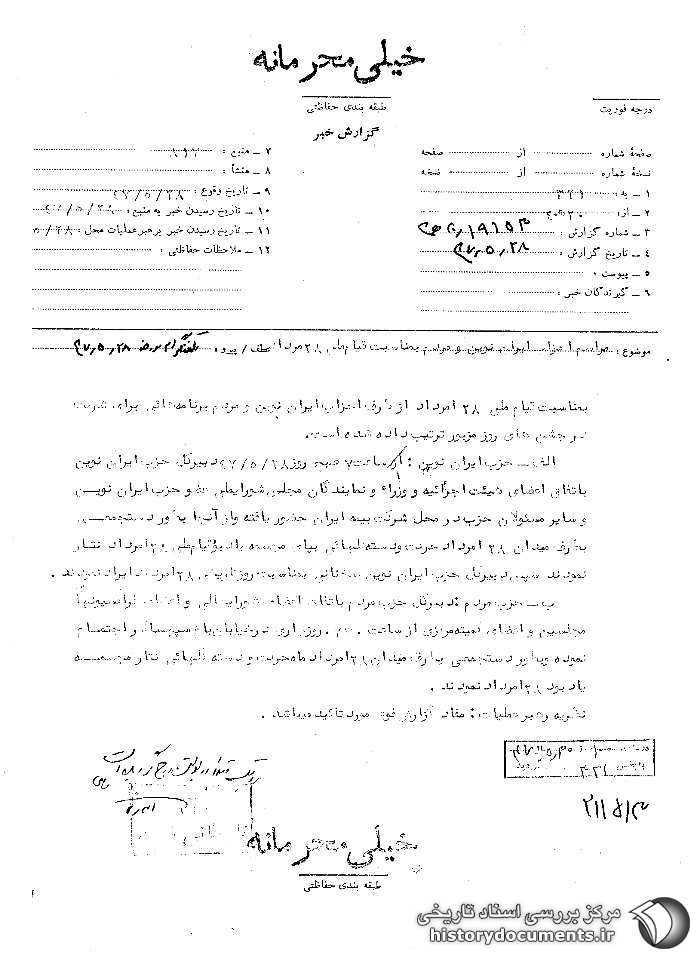 خیلی محرمانه
طبقه بندی حفاظتی
درجه فوریت
گزارش خبر
صفحهٔ شماره از صفحه
نسخهٔ شماره از نسخه
۱ ـ به : ۳۲۱
۲ ـ از :
۳ ـ شماره گزارش : ۱۹۱۵۳
۴ ـ تاریخ گزارش : ۴۷٫۵٫۲۸
۵ ـ پیوست :
۶ ـ گیرندگان خبر :
۷ ـ منبع :
۸ ـ منشأ :
۹ ـ تاریخ وقوع : ۴۷/۵/۲۸
۱۰ ـ تاریخ رسیدن خبر به منبع : ۴۷/۵/۲۸
۱۱ ـ تاریخ رسیدن خبر برهبر عملیات محل :
۱۲ ـ ملاحظات حفاظتی :
موضوع : مراسم احزاب ایران نوین و مردم بمناسبت قیام ملی ۲۸ مرداد عطف / پیرو : تلفنگرام مورخه ۴۷٫۵٫۲۸
بمناسبت قیام ملی ۲۸ امرداد از طرف احزاب ایران نوین و مردم برنامه هائی برای شرکت
در جشن های روز مزبور ترتیب داده شده است.
الف ـ حزب ایران نوین : از ساعت ۷ صبح روز ۴۷/۵/۲۸ دبیرکل حزب ایران نوین
باتفاق اعضای هیئت اجرائیه و وزراء و نمایندگان مجلس شورایملی عضو حزب ایران نوین
و سایر مسئولان حزب در محل شرکت بیمه ایران حضور یافته و از آنجا بطور دستجمعی
بطرف میدان ۲۸ امرداد حرکت و دسته گلهائی بپای مجسمه یادبود قیام ملی ۲۸ امرداد نثار
نمودند سپس دبیرکل حزب ایران نوین سخنانی بمناسبت روز تاریخی ۲۸ امرداد ایراد نمودند .
ب ـ حزب مردم : دبیرکل حزب مردم باتفاق اعضاء شورایعالی و اعضاء فراکسیونهای
مجلسین و اعضای کمیته مرکزی از ساعت روز جاری در خیابان باغ سپهسالار اجتماع
نموده و بطور دستجمعی بطرف میدان ۲۸ امرداد حرکت و دسته گلهائی نثار مجسمه
یادبود ۲۸ امرداد نمودند .
نظریه رهبر عملیات : مفاد گزارش فوق مورد تائید میباشد .
۳۲۱
خیلی محرمانه
طبقه بندی حفاظتی
مرکز بررسی اسناد تاریخی
historydocuments.ir